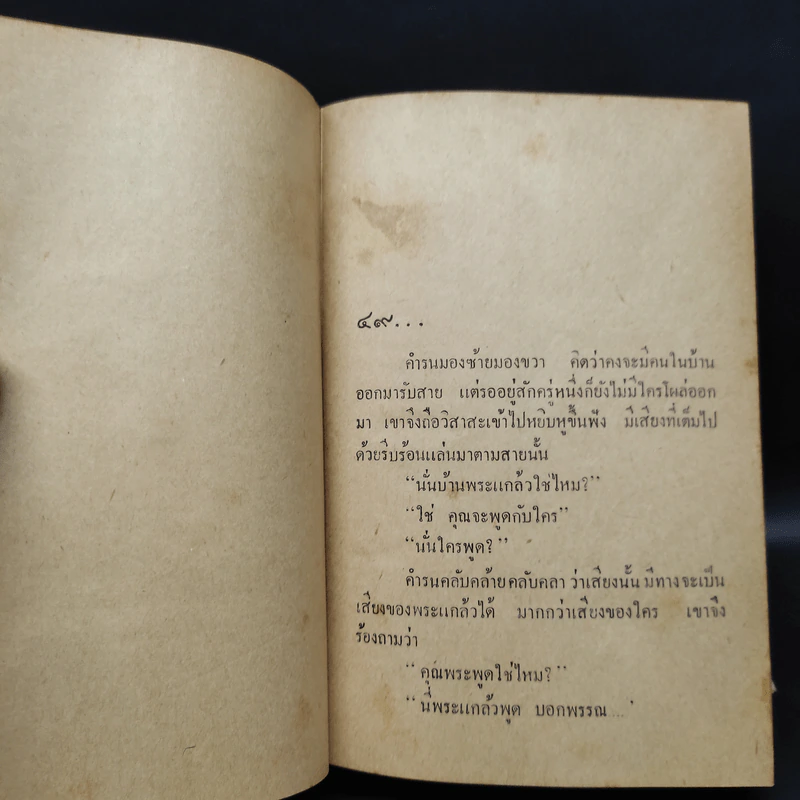 ๔๙...
คำรนมองซ้ายมองขวา คิดว่าคงจะมีคนในบ้าน
ออกมารับสาย แต่รออยู่สักครู่หนึ่งก็ยังไม่มีใครโผล่ออก
มา เขาจึงถือวิสาสะเข้าไปหยิบหูขึ้นฟัง มีเสียงที่เต็มไป
ด้วยรีบร้อนแล่นมาตามสายนั้น
“นั่นบ้านพระแกล้วใช่ไหม?”
“ใช่ คุณจะพูดกับใคร”
“นั่นใครพูด?”
คำรนคลับคล้ายคลับคลา ว่าเสียงนั้น มีทางจะเป็น
เสียงของพระแกล้วได้ มากกว่าเสียงของใคร เขาจึง
ร้องถามว่า
“คุณพระพูดใช่ไหม?”
“นี่พระแกล้วพูด บอกพรรณ...’